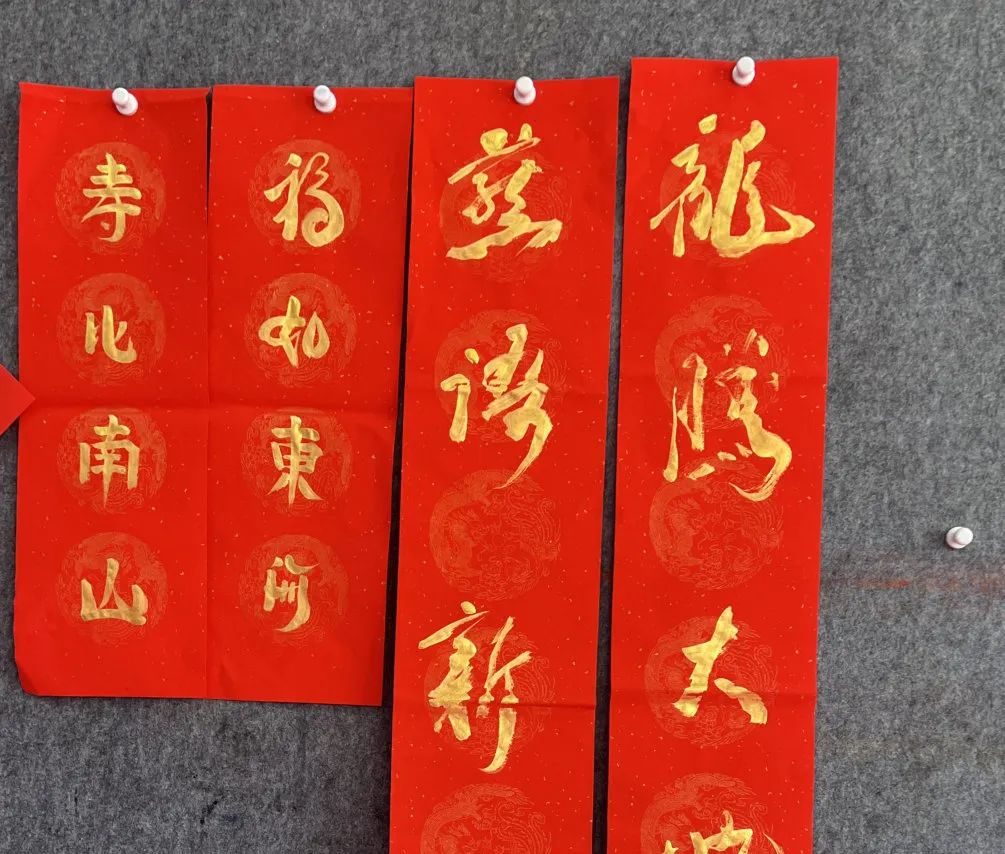 龍騰大
燕語新
福如東海
寿比南山